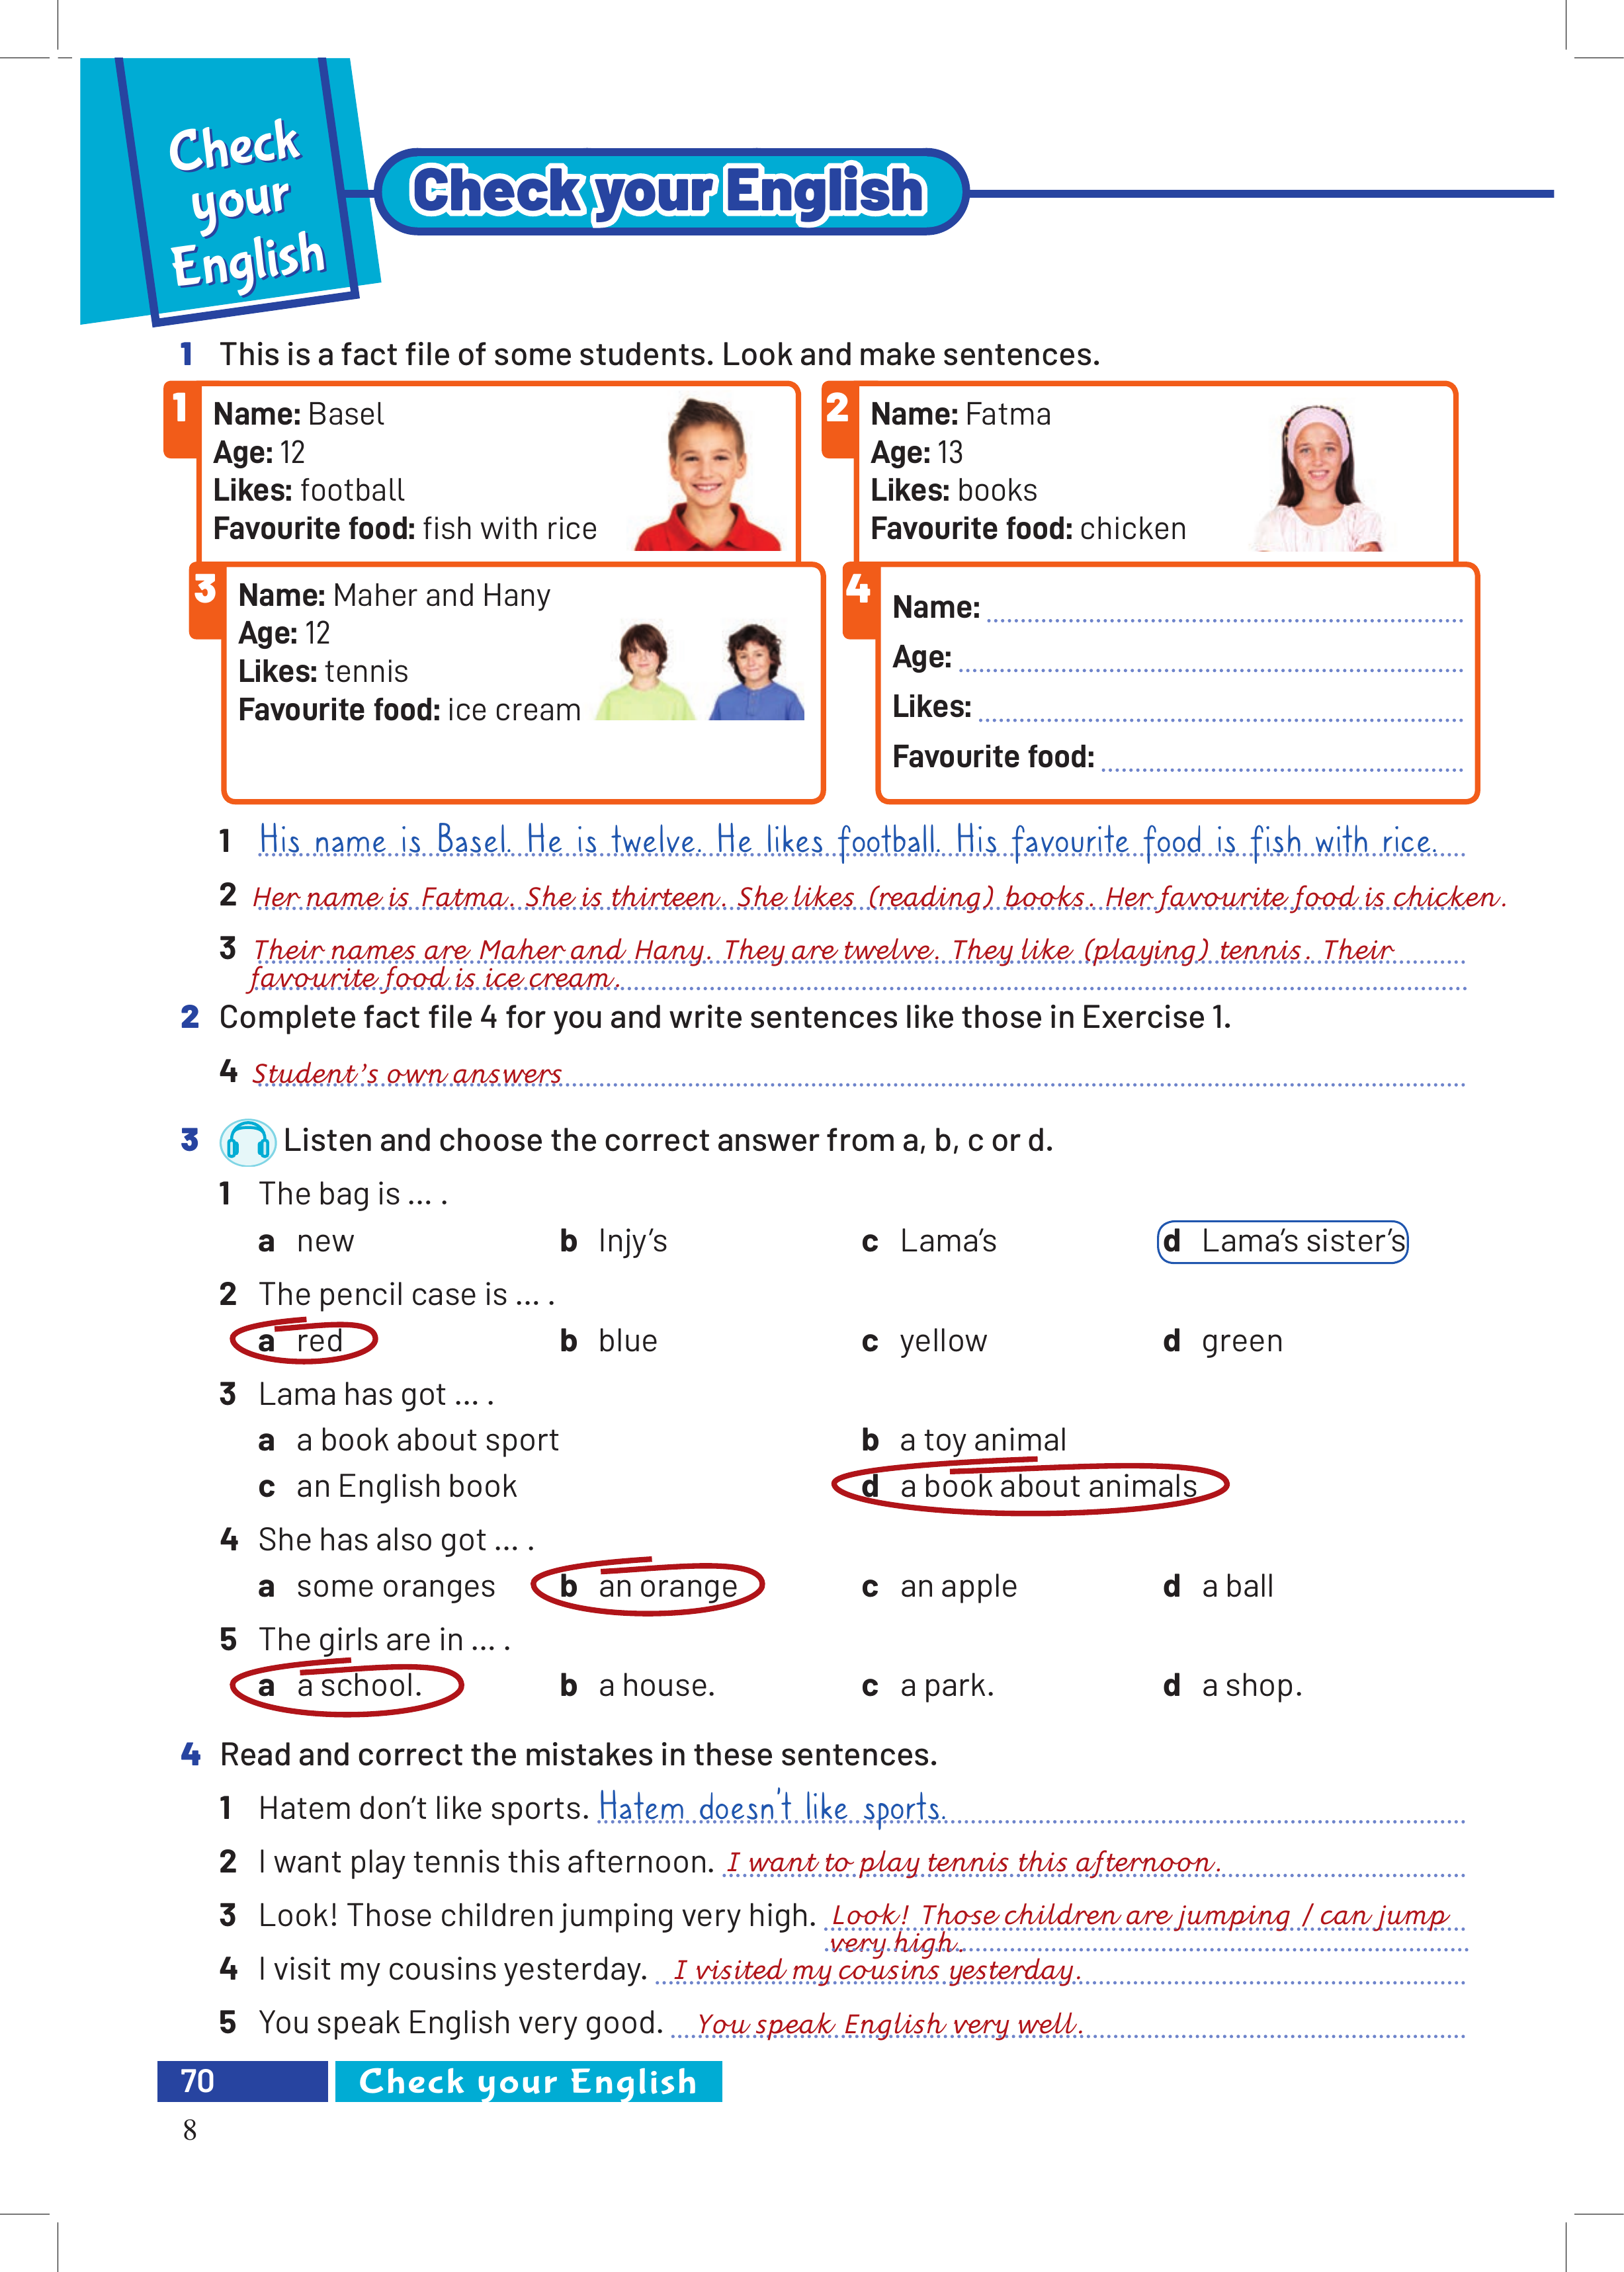 Check
your
English
Check your English
1 This is a fact file of some students. Look and make sentences.
1
Name: Basel
Age: 12
Likes: football
Favourite food: fish with rice
2
Name: Fatma
Age: 13
Likes: books
Favourite food: chicken
3
Name: Maher and Hany
Age: 12
Likes: tennis
Favourite food: ice cream
4
Name:
Age:
Likes:
Favourite food:
1 His name is Basel. He is twelve. He likes football. His favourite food is fish with rice.
2 Her name is Fatma. She is thirteen. She likes (reading) books. Her favourite food is chicken.
3 Their names are Maher and Hany. They are twelve. They like (playing) tennis. Their
favourite food is ice cream.
2 Complete fact file 4 for you and write sentences like those in Exercise 1.
4 Student's own answers
3 Listen and choose the correct answer from a, b, c or d.
1 The bag is ... .
a new b Injy's c Lama's d Lama's sister's
2 The pencil case is ... .
a red b blue c yellow d green
3 Lama has got ... .
a a book about sport b a toy animal
c an English book d a book about animals
4 She has also got ... .
a some oranges b an orange c an apple d a ball
5 The girls are in ... .
a a school. b a house. c a park. d a shop.
4 Read and correct the mistakes in these sentences.
1 Hatem don't like sports. Hatem doesn't like sports.
2 I want play tennis this afternoon. I want to play tennis this afternoon.
3 Look! Those children jumping very high. Look! Those children are jumping / can jump
very high.
4 I visit my cousins yesterday. I visited my cousins yesterday.
5 You speak English very good. You speak English very well.
70 Check your English
8